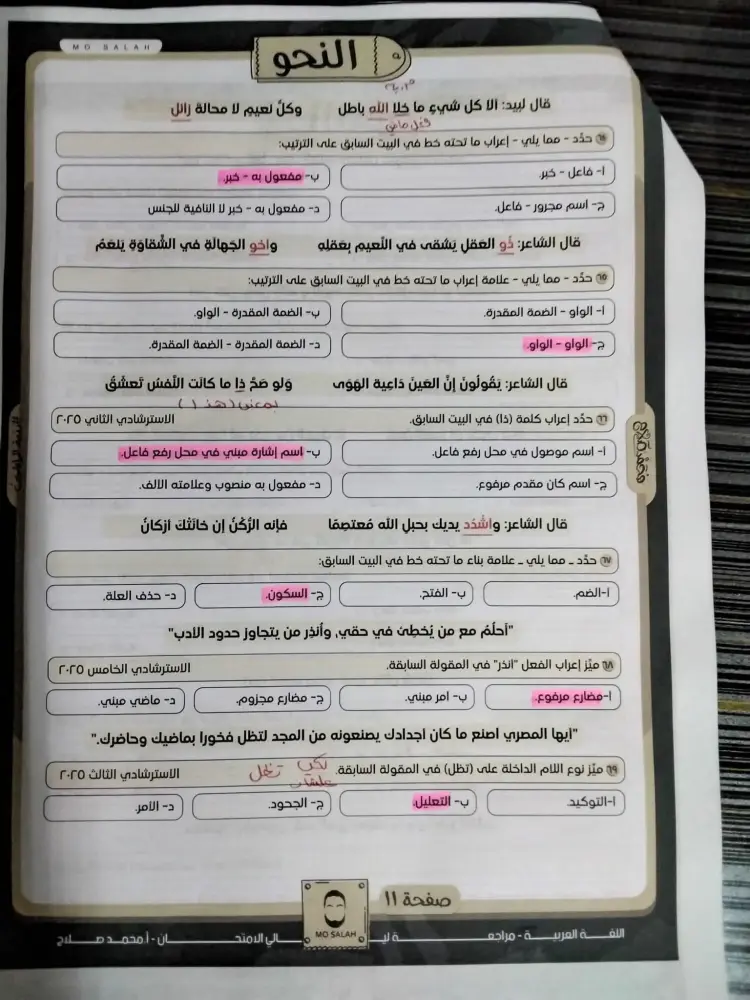 MO SALAH
النحو
قال لبيد: ألا كل شيءٍ ما خلا الله باطل وكلُّ نعيمٍ لا محالة زائل
فعل ماضي
٦٤ حدِّد - مما يلي - إعراب ما تحته خط في البيت السابق على الترتيب:
أ- فاعل - خبر. ب- مفعول به - خبر.
ج- اسم مجرور - فاعل. د- مفعول به - خبر لا النافية للجنس
قال الشاعر: ذُو العَقلِ يَشقى في النَّعيمِ بِعَقلِهِ وأخو الجَهالَةِ في الشَّقاوَةِ يَنعَمُ
٦٥ حدِّد - مما يلي - علامة إعراب ما تحته خط في البيت السابق على الترتيب:
أ- الواو - الضمة المقدرة. ب- الضمة المقدرة - الواو.
ج- الواو - الواو. د- الضمة المقدرة - الضمة المقدرة.
قال الشاعر: يَقُولُونَ إنَّ العَينَ دَاعِية الهَوَى وَلو صَحَّ ذا ما كانَت النَّفسُ تَعشَقُ
بمعنى (هذا)
٦٦ حدِّد إعراب كلمة (ذا) في البيت السابق. الاسترشادي الثاني ٢٠٢٥
أ- اسم موصول في محل رفع فاعل. ب- اسم إشارة مبني في محل رفع فاعل.
ج- اسم كان مقدم مرفوع. د- مفعول به منصوب وعلامته الألف.
قال الشاعر: واشْدُد يديك بحبلِ الله مُعتصِمًا فإنه الرُّكنُ إن خانَتْكَ أركانُ
٦٧ حدِّد ـ مما يلي ـ علامة بناء ما تحته خط في البيت السابق:
أ-الضم. ب- الفتح. ج- السكون. د- حذف العلة.
"أحلُمُ مع من يُخطِئ في حقي، وأُنذِر من يتجاوز حدود الأدب"
٦٨ ميِّز إعراب الفعل "أنذر" في المقولة السابقة. الاسترشادي الخامس ٢٠٢٥
أ-مضارع مرفوع. ب- أمر مبني. ج- مضارع مجزوم. د- ماضي مبني.
"أيها المصري اصنع ما كان أجدادك يصنعونه من المجد لتظل فخورا بماضيك وحاضرك."
لكي تظل
٦٩ ميِّز نوع اللام الداخلة على (تظل) في المقولة السابقة. الاسترشادي الثالث ٢٠٢٥
أ-التوكيد. ب- التعليل. ج- الجحود. د- الأمر.
صفحة ١١
MO SALAH